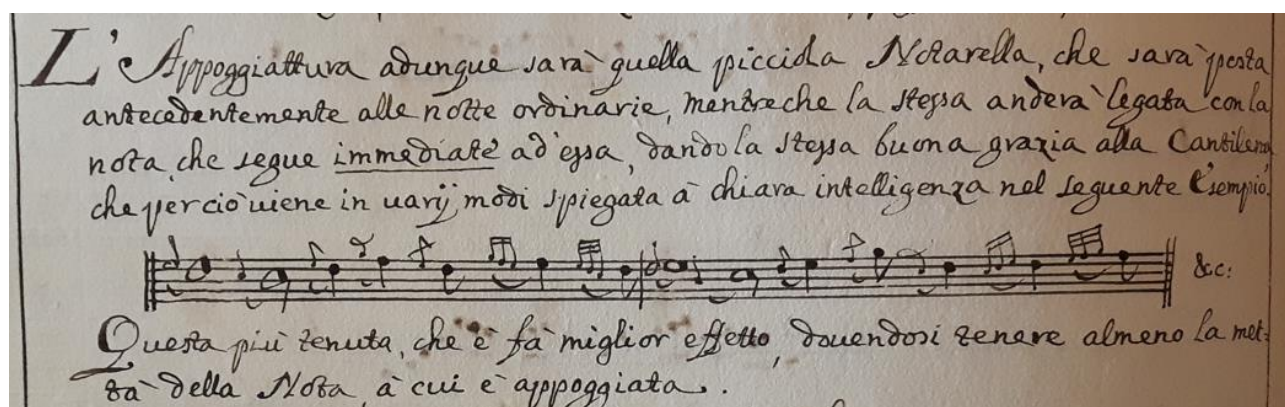 L'Appoggiattura adunque sarà quella picciola Notarella, che sarà posta
antecedentemente alle notte ordinarie, mentreche la stessa anderà legata con la
nota, che segue immediatè ad'essa, dando la stessa buona grazia alla Cantilena
che perciò uiene in uarij modi spiegata à chiara intelligenza nel seguente Esempio.
&c:
Questa più tenuta, che è fà miglior effetto, douendosi tenere almeno la met=
tà della Nota, à cui è appoggiata.